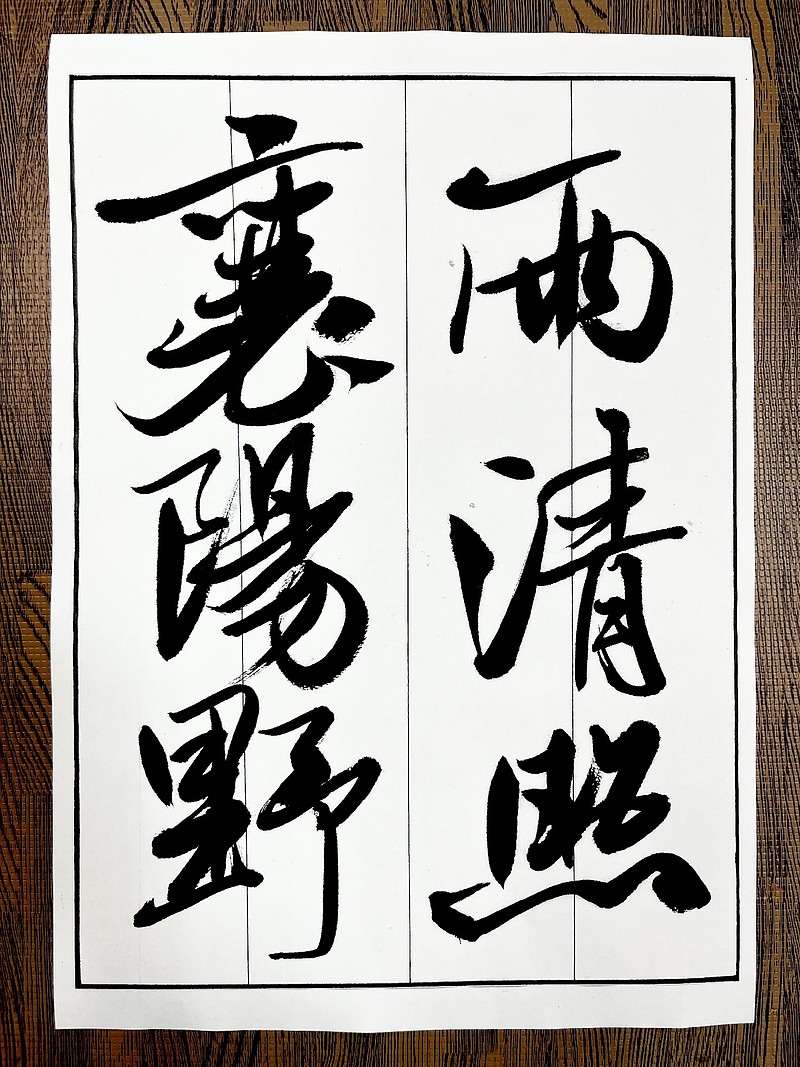 兩清照
襄陽野